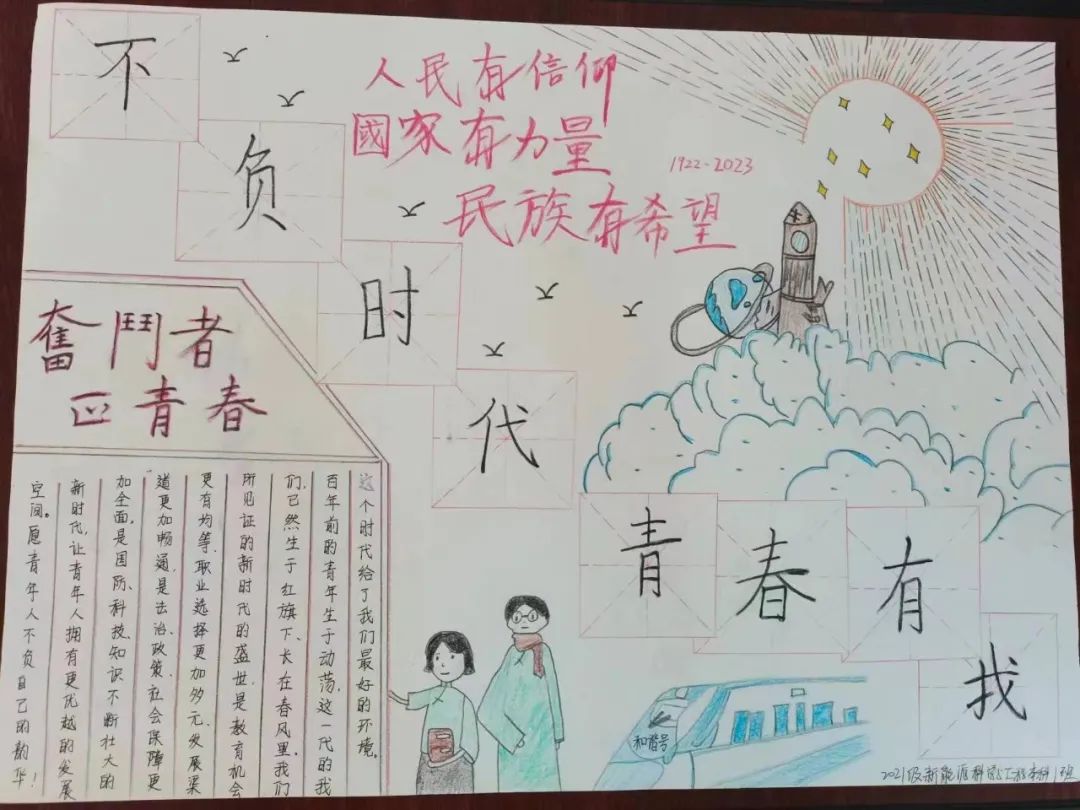 不负时代
青春有我
人民有信仰
國家有力量
民族有希望
1922-2023
奮鬥者
正青春
这个时代给了我们最好的环境。
百年前的青年生于动荡,这一代的我
们,已然生于红旗下、长在春风里。我们
所见证的新时代的盛世,是教育机会
更有均等、职业选择更加多元、发展渠
道更加畅通,是法治、政策、社会保障更
加全面,是国防、科技、知识不断壮大的
新时代,让青年人拥有更优越的发展
空间。愿青年人不负自己的韶华!
和谐号
2021级新能源科学与工程本科1班